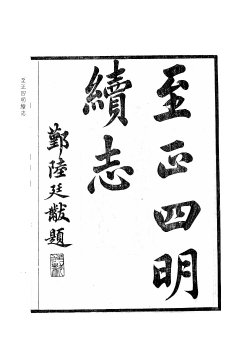 至正四明
續志
鄞陸廷黻題
至正四明續志